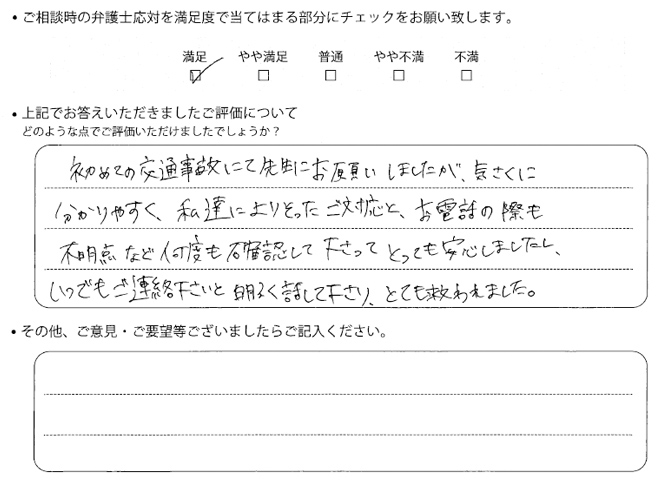 • ご相談時の弁護士応対を満足度で当てはまる部分にチェックをお願い致します。
満足 やや満足 普通 やや不満 不満
• 上記でお答えいただきましたご評価について
どのような点でご評価いただけましたでしょうか？
初めての交通事故にて先生にお願いしましたが、気さくに
分かりやすく、私達によりそったご対応と、お電話の際も
不明点など何度も確認して下さってとっても安心しましたし、
いつでもご連絡下さいと明るく話して下さり、とても救われました。
• その他、ご意見・ご要望等ございましたらご記入ください。